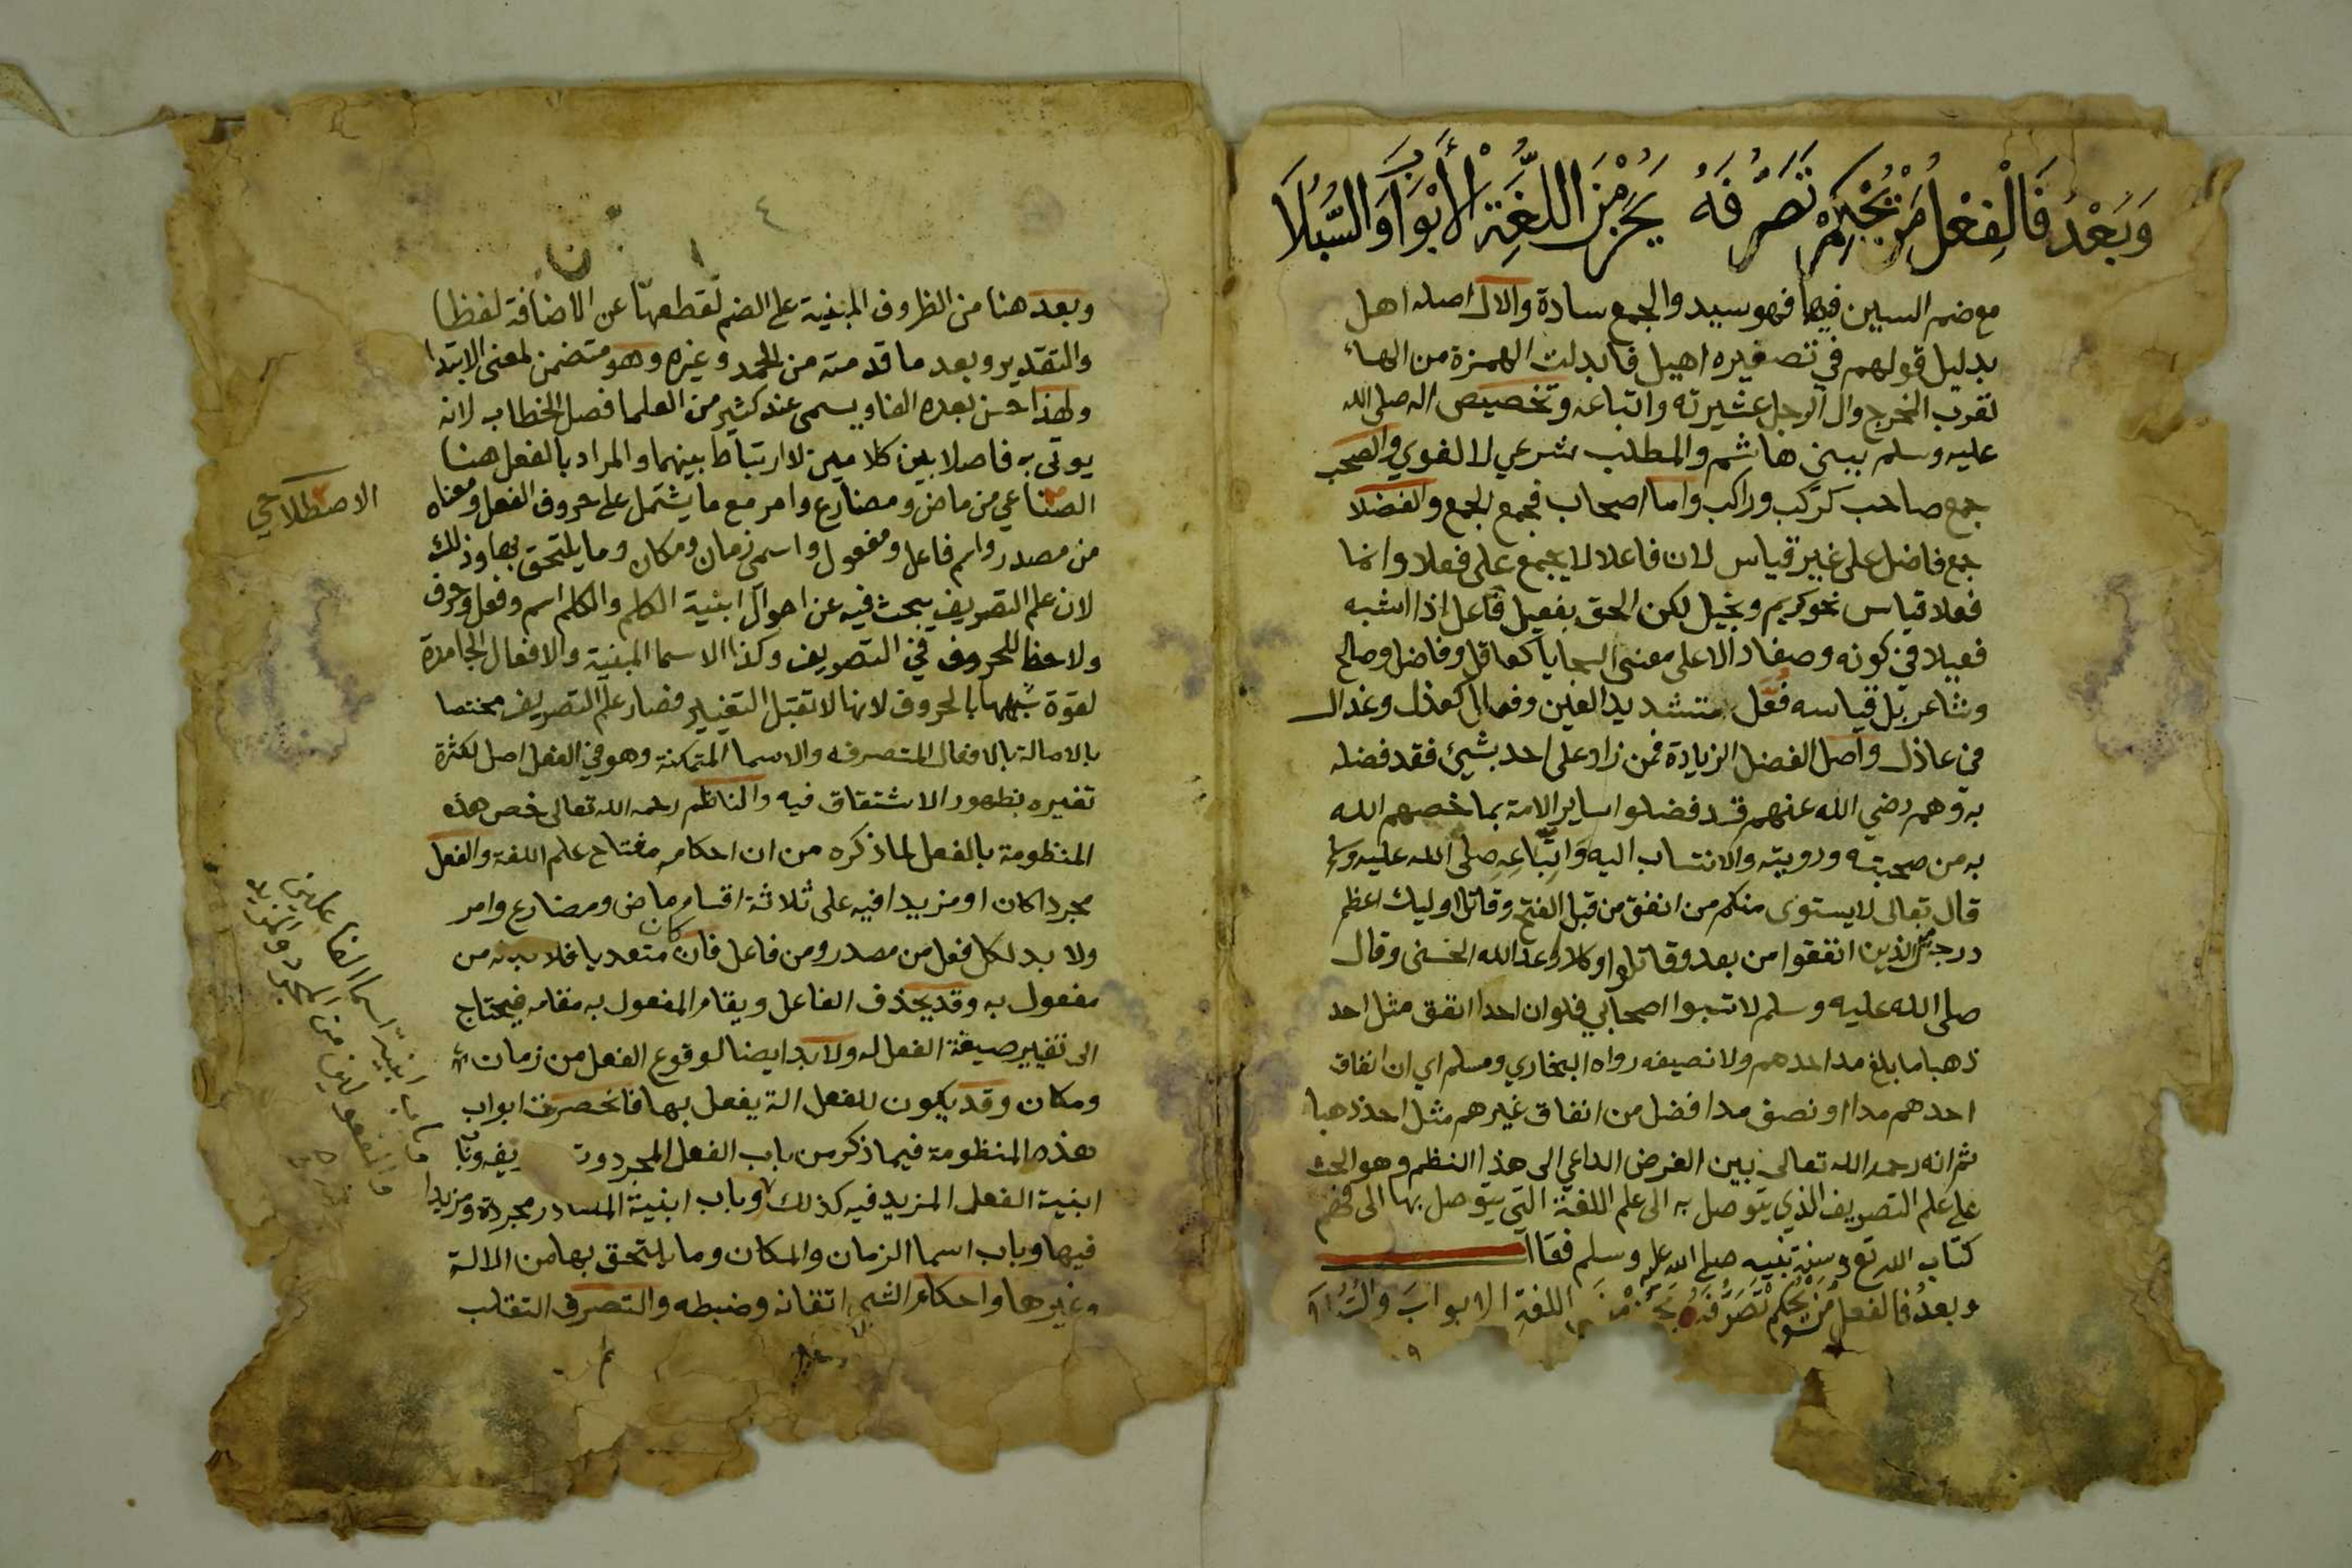 وَبَعْدُ فَالْفِعْلُ مَنْ يُحْكِمْ تَصَرُّفَهُ يَحُزْ مِنَ اللُّغَةِ الْأَبْوَابَ وَالسُّبُلَا
مع ضم السين فيها فهو سيد والجمع سادة والال اصله اهل
بدليل قولهم في تصغيره اهيل فابدلت الهمزة من الهاء
لقرب المخرج وال الرجل عشيرته واتباعه وتخصيص اله صلى الله
عليه وسلم ببني هاشم والمطلب شرعي لا لغوي والصحب
جمع صاحب كركب وراكب واما اصحاب فجمع الجمع والفضلا
جمع فاضل على غير قياس لان فاعلا لا يجمع على فعلا وانما
فعلا قياس نحو كريم وبخيل لكن الحق بفعيل فاعل اذا اشبه
فعيلا في كونه وصفا دالا على معنى السجايا كعاقل وفاضل وصالح
وشاعر بل قياسه فعل بتشديد العين وفعال كعذل وعذال
في عاذل واصل الفضل الزيادة فمن زاد على احد بشيئ فقد فضله
به وهم رضي الله عنهم قد فضلوا ساير الامة بما خصهم الله
به من صحبته ورويته والانتساب اليه وَاتِّبَاعِهِ صلى الله عليه وسلم
قال تعالى لا يستوى منكم من انفق من قبل الفتح وقاتل اوليك اعظم
درجة من الذين انفقوا من بعد وقاتلوا وكلا وعد الله الحسنى وقال
صلى الله عليه وسلم لا تسبوا اصحابي فلو ان احدا انفق مثل احد
ذهبا ما بلغ مد احدهم ولا نصيفه رواه البخاري ومسلم اي ان انفاق
احدهم مدا او نصف مدا افضل من انفاق غيرهم مثل احد ذهبا
ثم انه رحمه الله تعالى بين الغرض الداعي الى هذا النظم وهو الحث
على علم التصريف الذي يتوصل به الى علم اللغة التي يتوصل بها الى فهم
كتاب الله تع وسنة نبيه صلى الله عليه وسلم فقال
وبعدُ فالفعلُ مَنْ يُحْكِمْ تَصَرُّفَهُ يَحُزْ مِنَ اللغة الابوابَ والسُّبُلا
٤
وبعد هنا من الظروف المبنية على الضم لقطعها عن الاضافة لفظا
والتقدير وبعد ما قدمته من الحمد وغيره وهو متضمن لمعنى الابتدا
ولهذا حسن بعده الفا ويسمى عند كثير من العلما فصل الخطاب لانه
يوتى به فاصلا بين كلامين لا ارتباط بينهما والمراد بالفعل هنا
الصناعي من ماض ومضارع وامر مع ما يشتمل على حروف الفعل ومعناه
الاصطلاحي
من مصدر واسم فاعل ومفعول واسمى زمان ومكان وما يلتحق بها وذلك
لان علم التصريف يبحث فيه عن احوال ابنية الكلم والكلم اسم وفعل وحرف
ولا حظ للحروف في التصريف وكذا الاسما المبنية والافعال الجامدة
لقوة شبهها بالحروف لانها لا تقبل التغيير فصار علم التصريف مختصا
بالاصالة بالافعال المتصرفه والاسما المتمكنة وهو في الفعل اصل لكثرة
تغيره بظهور الاشتقاق فيه والناظم رحمه الله تعالى خص هذه
المنظومة بالفعل لما ذكره من ان احكامه مفتاح علم اللغة والفعل
مجردا كان او مزيدا فيه على ثلاثة اقسام ماض ومضارع وامر
ولا بد لكل فعل من مصدر ومن فاعل فان كان متعديا فلا بد له من
مفعول به وقد يحذف الفاعل ويقام المفعول به مقامه فيحتاج
الى تغيير صيغة الفعل له ولا بد ايضا لوقوع الفعل من زمان
ومكان وقد يكون للفعل الة يفعل بها فانحصرت ابواب
هذه المنظومة فيما ذكر من باب الفعل المجرد وتصاريفه وباب
ابنية الفعل المزيد فيه كذلك وباب ابنية المصادر مجردة ومزيدا
فيها وباب اسما الزمان والمكان وما يلتحق بها من الالة
وغيرها واحكام الشي اتقانه وضبطه والتصرف التقلب
وباب ابنية اسما الفاعلين
والمفعولين من المجرد والمزيد